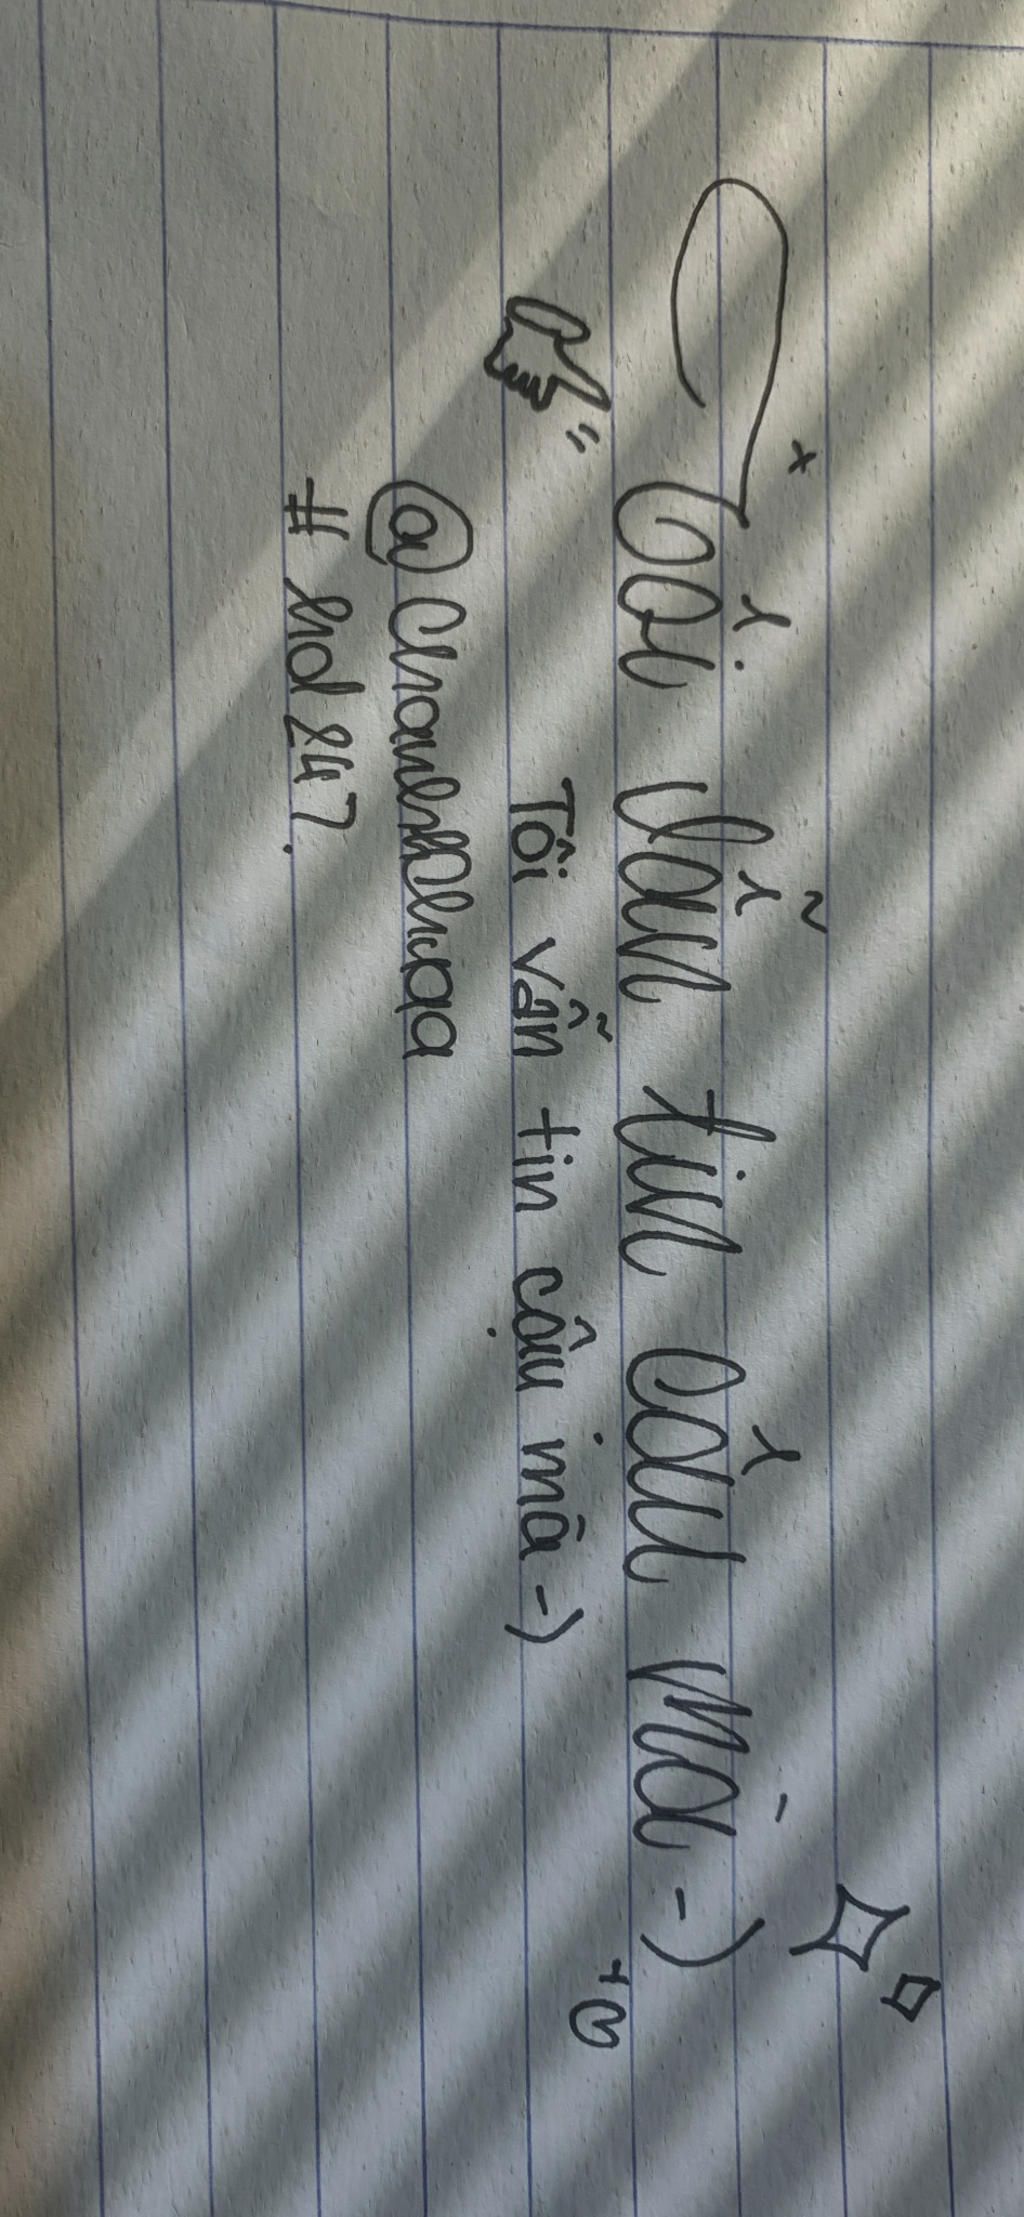 Tôi vẫn tin cậu mà -)
Tôi vẫn tin cậu mà -)
@Chanhkhuqa
# hd 247.